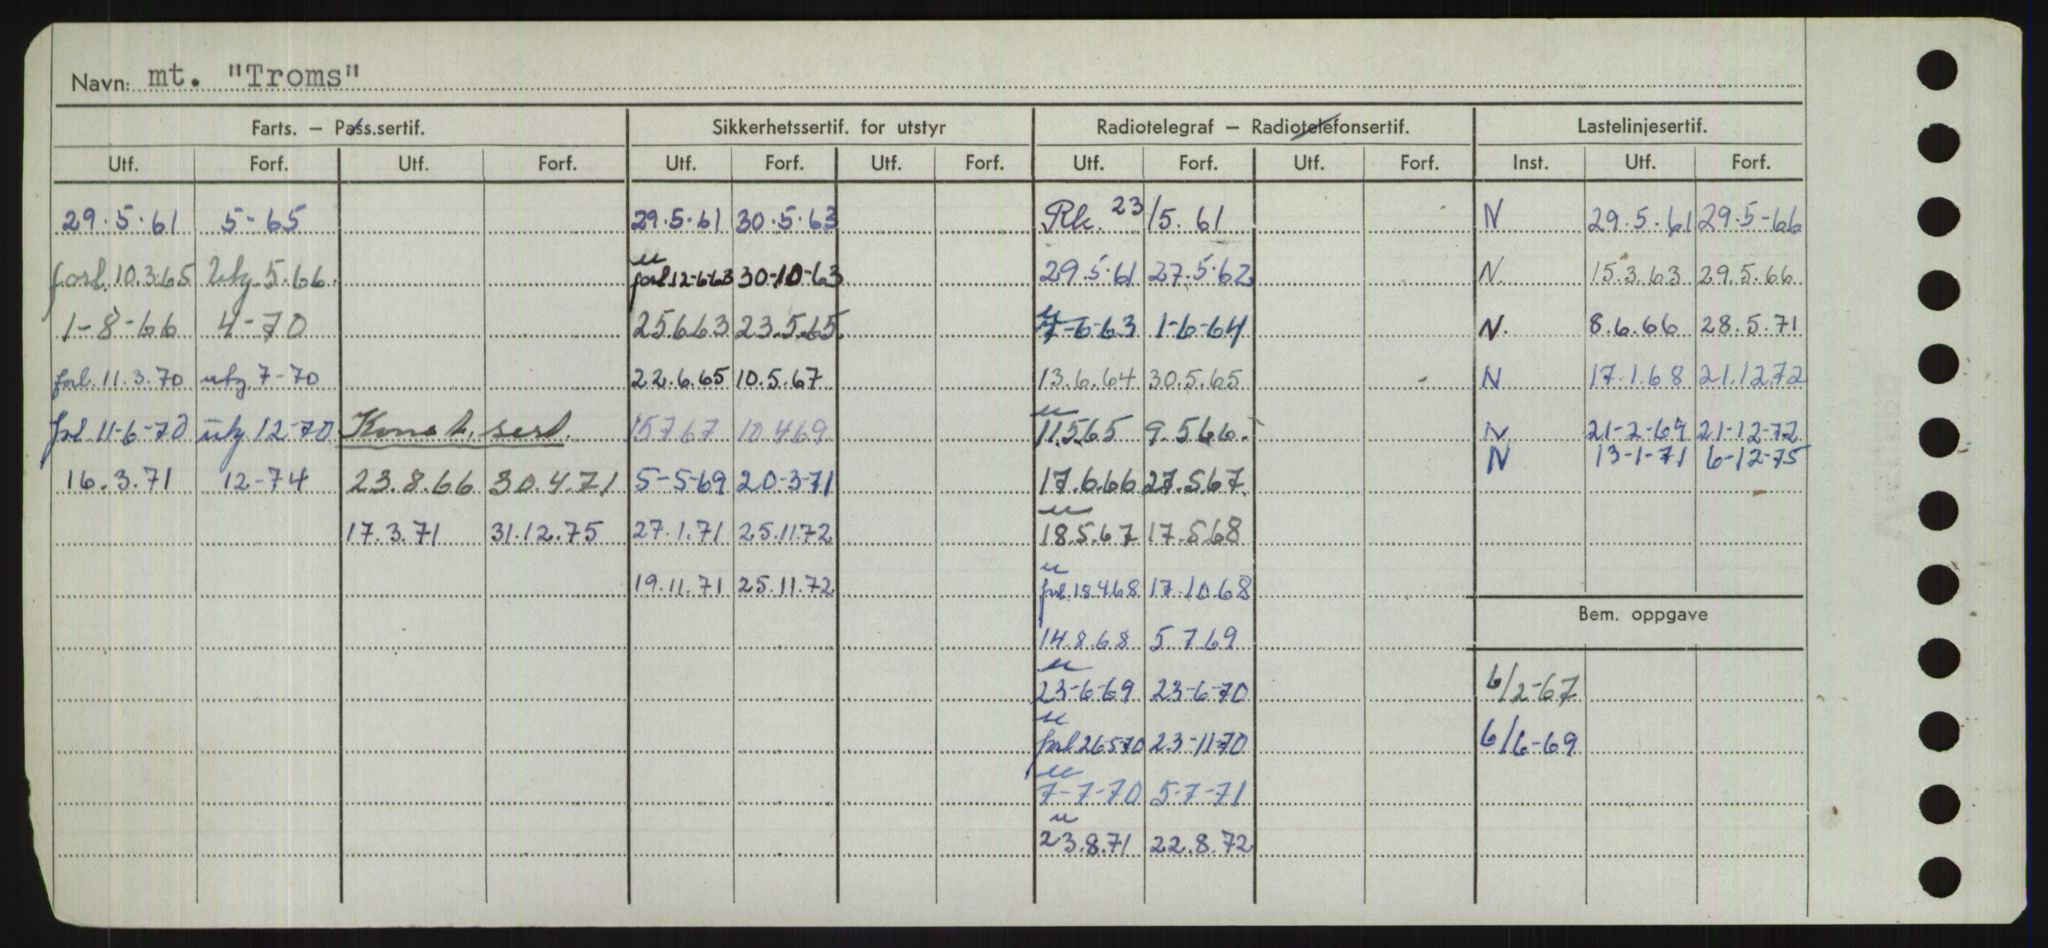 Navn: mt. "Troms"
Farts. — Pass.sertif. Sikkerhetssertif. for utstyr Radiotelegraf — Radiotelefonsertif. Lastelinjesertif.
Utf. Forf. Utf. Forf. Utf. Forf. Utf. Forf. Utf. Forf. Utf. Forf. Inst. Utf. Forf.
29.5.61 5-65 29.5.61 30.5.63 Rk. 23/5.61 N 29.5.61 29.5-66
forl. 10.3.65 utg 5.66. u forl 12-6-63 30-10-63 29.5.61 27.5.62 N. 15.3.63 29.5.66
1-8-66 4-70 25.6.63 23.5.65. u 7-6-63 1-6-64 N. 8.6.66 28.5.71
forl. 11.3.70 utg 7-70 22.6.65 10.5.67 13.6.64 30.5.65 N 17.1.68 21.12.72
forl 11-6-70 utg 12-70 Konst. sert. 15767 10.4.69 u 11.5.65 9.5.66. N 21-2-69 21-12-72
N 13-1-71 6-12-75
16.3.71 12-74 23.8.66 30.4.71 5-5-69 20-3-71 17.6.66 27.5.67.
17.3.71 31.12.75 27.1.71 25.11.72 u 18.5.67 17.5.68
19.11.71 25.11.72 u forl. 18.4.68 17.10.68
Bem. oppgave
14.8.68 5.7.69
u 23-6-69 23-6-70 6/2-67
u forl 26-5-70 23-11-70 6/6-69
u 7-7-70 5-7-71
u 23.8.71 22.8.72